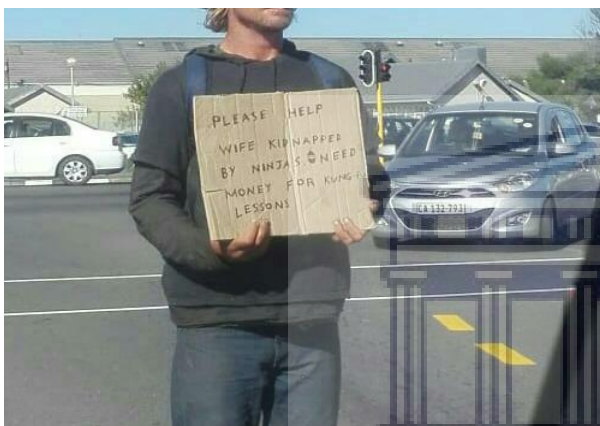 PLEASE HELP
WIFE KIDNAPPED
BY NINJAS NEED
MONEY FOR KUNG
LESSONS